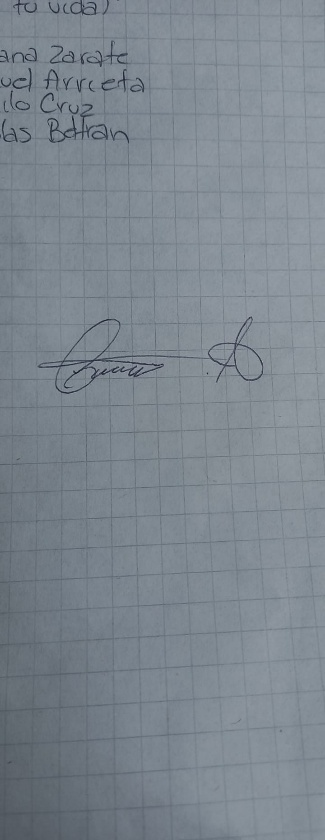 tu vida)
ana Zarate
uel Arrieta
ilo Cruz
las Beltran